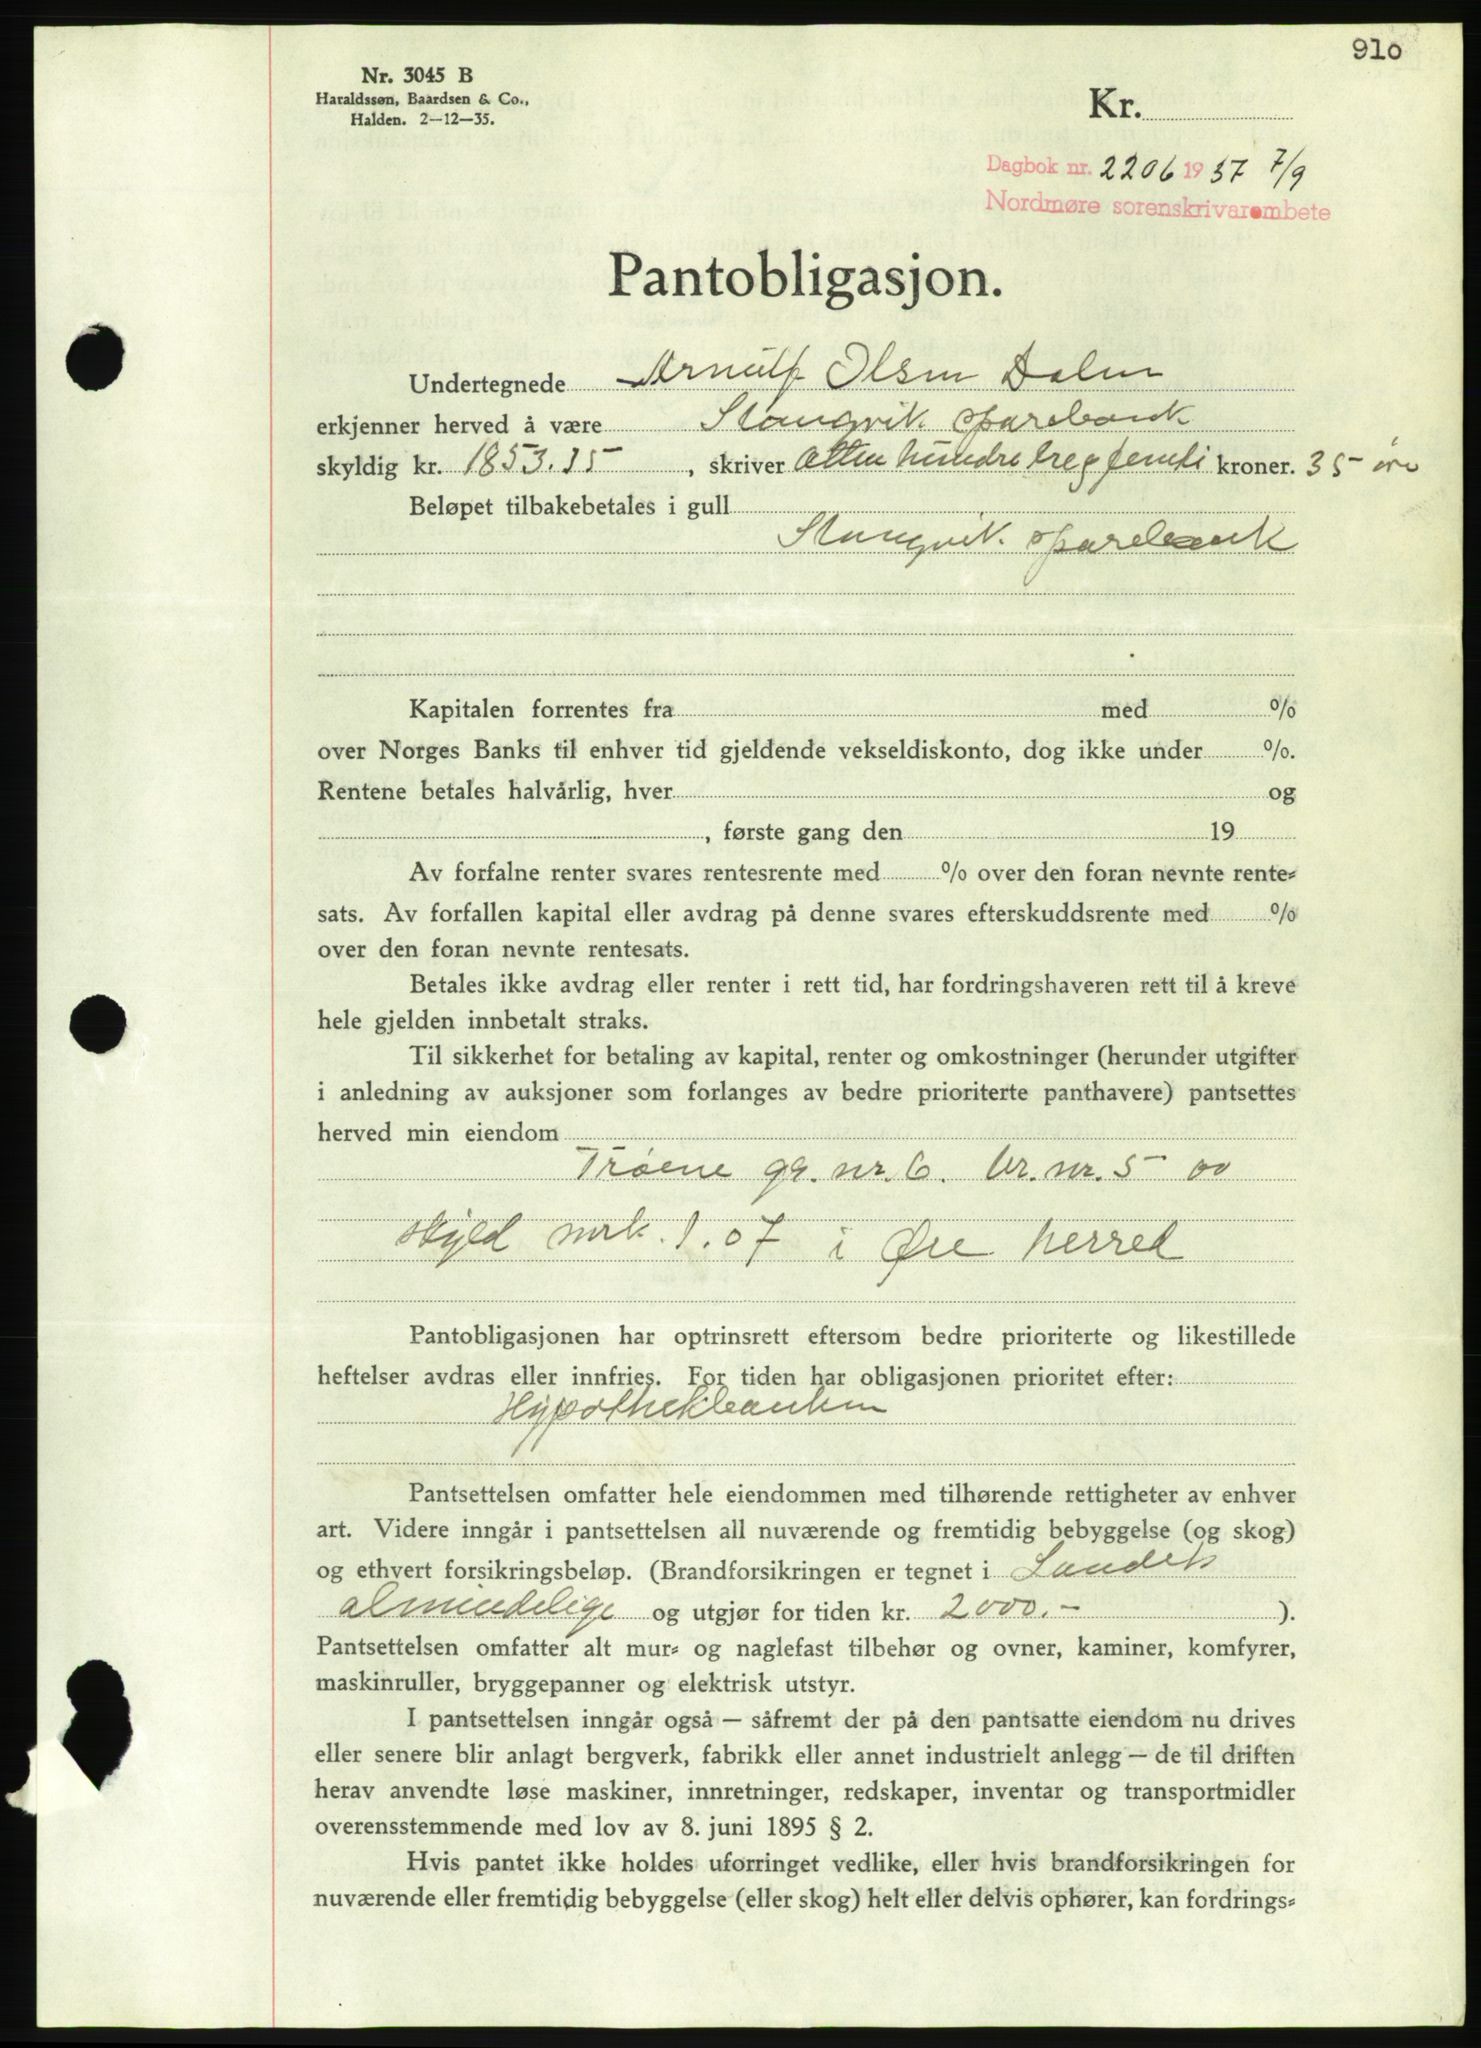 910
Nr. 3045 B
Haraldssøn, Baardsen & Co.,
Halden. 2—12—35.
Kr.
Dagbok nr. 2206 1937 7/9
Nordmøre sorenskriverembete
Pantobligasjon.
Undertegnede Arnulf Olsen Dalen
erkjenner herved å være Stangvik sparebank
skyldig kr. 1853.35 , skriver Atten hundre treogfemti kroner. 35 øre
Beløpet tilbakebetales i gull
Stangvik sparebank
Kapitalen forrentes fra med %
over Norges Banks til enhver tid gjeldende vekseldiskonto, dog ikke under %.
Rentene betales halvårlig, hver og
, første gang den 19
Av forfalne renter svares rentesrente med % over den foran nevnte rente-
sats. Av forfallen kapital eller avdrag på denne svares efterskuddsrente med %
over den foran nevnte rentesats.
Betales ikke avdrag eller renter i rett tid, har fordringshaveren rett til å kreve
hele gjelden innbetalt straks.
Til sikkerhet for betaling av kapital, renter og omkostninger (herunder utgifter
i anledning av auksjoner som forlanges av bedre prioriterte panthavere) pantsettes
herved min eiendom
Trøene gr. nr. 6. br. nr. 5 av
skyld mrk. 1.07 i Øre herred
Pantobligasjonen har optrinsrett eftersom bedre prioriterte og likestillede
heftelser avdras eller innfries. For tiden har obligasjonen prioritet efter:
Hypothekbanken
Pantsettelsen omfatter hele eiendommen med tilhørende rettigheter av enhver
art. Videre inngår i pantsettelsen all nuværende og fremtidig bebyggelse (og skog)
og ethvert forsikringsbeløp. (Brandforsikringen er tegnet i Landets
almindelige og utgjør for tiden kr. 2000.- ).
Pantsettelsen omfatter alt mur- og naglefast tilbehør og ovner, kaminer, komfyrer,
maskinruller, bryggepanner og elektrisk utstyr.
I pantsettelsen inngår også — såfremt der på den pantsatte eiendom nu drives
eller senere blir anlagt bergverk, fabrikk eller annet industrielt anlegg — de til driften
herav anvendte løse maskiner, innretninger, redskaper, inventar og transportmidler
overensstemmende med lov av 8. juni 1895 § 2.
Hvis pantet ikke holdes uforringet vedlike, eller hvis brandforsikringen for
nuværende eller fremtidig bebyggelse (eller skog) helt eller delvis ophører, kan fordrings-